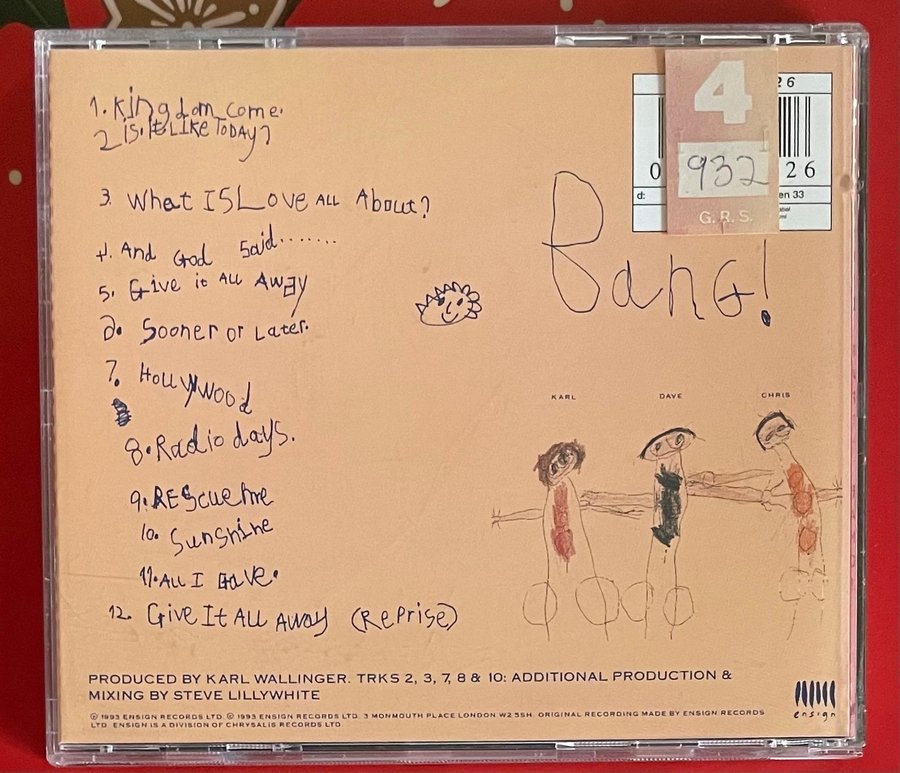 1. Kingdom come.
2 is.It LIKE TODAY?
3. What IS Love ALL About?
4. And God Said.......
5. Give it ALL AWAy
6. Sooner or Later.
7. HOLLYWOOD
8. Radio days.
9. REScue me
10. Sunshine
11. ALL I Gave.
12. Give It ALL AWAy (RePrise)
26
4
932
0
26
d:
en 33
G.R.S.
BanG!
KARL DAVE CHRIS
PRODUCED BY KARL WALLINGER. TRKS 2, 3, 7, 8 & 10: ADDITIONAL PRODUCTION &
MIXING BY STEVE LILLYWHITE
Ⓟ 1993 ENSIGN RECORDS LTD. © 1993 ENSIGN RECORDS LTD. 3 MONMOUTH PLACE LONDON W2 5SH. ORIGINAL RECORDING MADE BY ENSIGN RECORDS
LTD. ENSIGN IS A DIVISION OF CHRYSALIS RECORDS LTD.
ensign